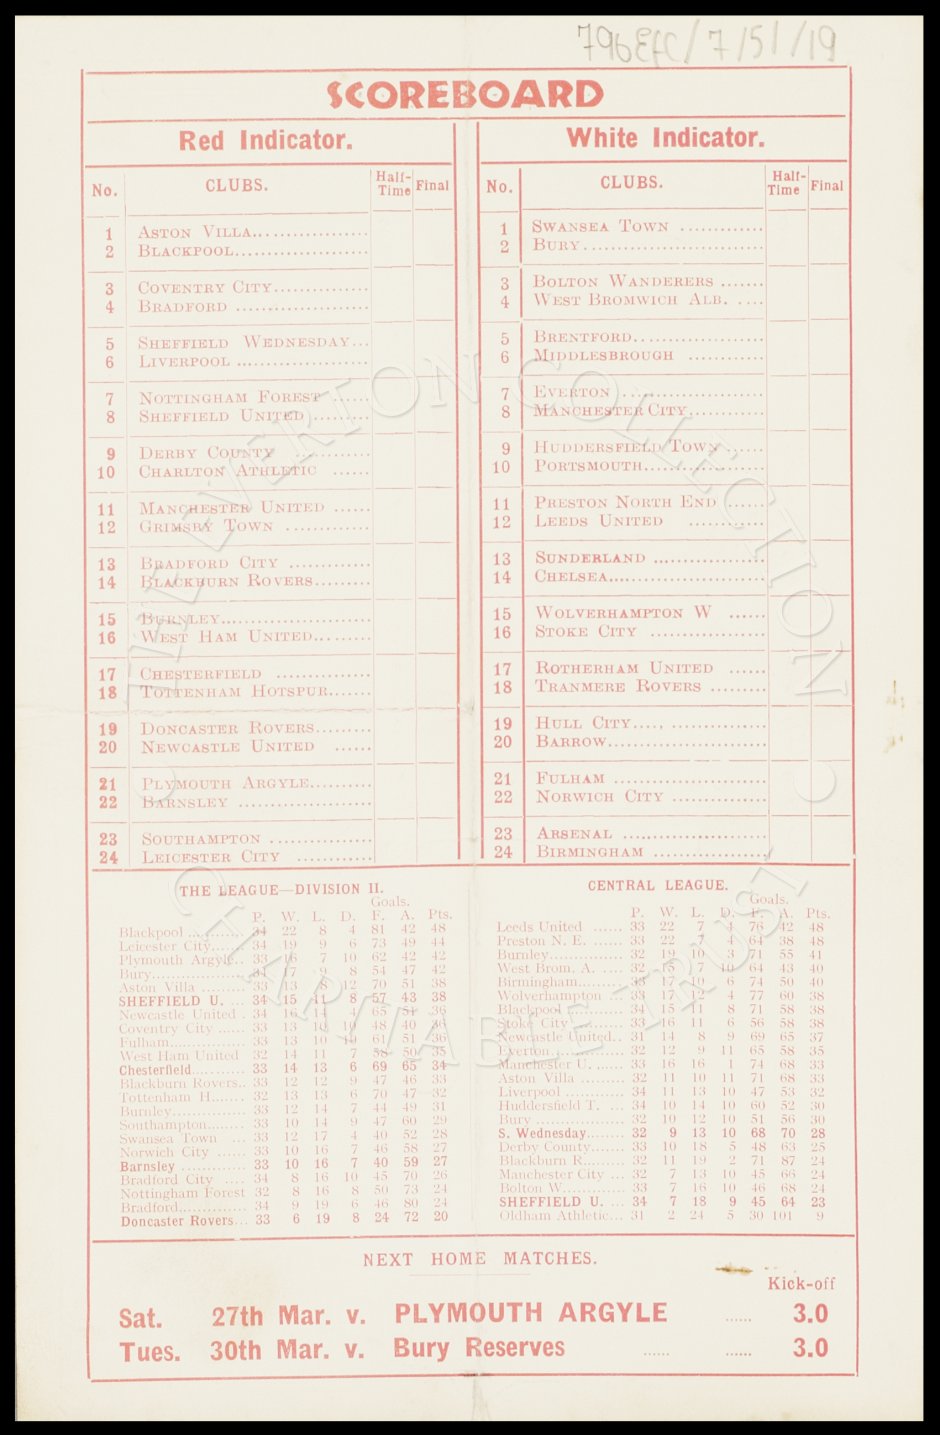 796 EFC/7/51/19
SCOREBOARD
Red Indicator.
No. CLUBS. Half-Time Final
1 ASTON VILLA
2 BLACKPOOL
3 COVENTRY CITY
4 BRADFORD
5 SHEFFIELD WEDNESDAY
6 LIVERPOOL
7 NOTTINGHAM FOREST
8 SHEFFIELD UNITED
9 DERBY COUNTY
10 CHARLTON ATHLETIC
11 MANCHESTER UNITED
12 GRIMSBY TOWN
13 BRADFORD CITY
14 BLACKBURN ROVERS
15 BURNLEY
16 WEST HAM UNITED
17 CHESTERFIELD
18 TOTTENHAM HOTSPUR
19 DONCASTER ROVERS
20 NEWCASTLE UNITED
21 PLYMOUTH ARGYLE
22 BARNSLEY
23 SOUTHAMPTON
24 LEICESTER CITY
White Indicator.
No. CLUBS. Half-Time Final
1 SWANSEA TOWN
2 BURY
3 BOLTON WANDERERS
4 WEST BROMWICH ALB.
5 BRENTFORD
6 MIDDLESBROUGH
7 EVERTON
8 MANCHESTER CITY
9 HUDDERSFIELD TOWN
10 PORTSMOUTH
11 PRESTON NORTH END
12 LEEDS UNITED
13 SUNDERLAND
14 CHELSEA
15 WOLVERHAMPTON W
16 STOKE CITY
17 ROTHERHAM UNITED
18 TRANMERE ROVERS
19 HULL CITY
20 BARROW
21 FULHAM
22 NORWICH CITY
23 ARSENAL
24 BIRMINGHAM
THE LEAGUE—DIVISION II.
Goals.
P. W. L. D. F. A. Pts.
Blackpool 34 22 8 4 81 42 48
Leicester City 34 19 9 6 73 49 44
Plymouth Argyle 33 16 7 10 62 42 42
Bury 34 17 9 8 54 47 42
Aston Villa 33 13 8 12 70 51 38
SHEFFIELD U. 34 15 11 8 57 43 38
Newcastle United 34 16 14 4 65 51 36
Coventry City 33 13 10 10 48 40 36
Fulham 33 13 10 10 61 51 36
West Ham United 32 14 11 7 58 50 35
Chesterfield 33 14 13 6 69 65 34
Blackburn Rovers 33 12 12 9 47 46 33
Tottenham H. 32 13 13 6 70 47 32
Burnley 33 12 14 7 44 49 31
Southampton 33 10 14 9 47 60 29
Swansea Town 33 12 17 4 40 52 28
Norwich City 33 10 16 7 46 58 27
Barnsley 33 10 16 7 40 59 27
Bradford City 34 8 16 10 45 70 26
Nottingham Forest 32 8 16 8 50 73 24
Bradford 34 9 19 6 46 80 24
Doncaster Rovers 33 6 19 8 24 72 20
CENTRAL LEAGUE.
Goals.
P. W. L. D. F. A. Pts.
Leeds United 33 22 7 4 76 42 48
Preston N. E. 33 22 7 4 64 38 48
Burnley 32 19 10 3 71 55 41
West Brom. A. 32 15 7 10 64 43 40
Birmingham 33 17 10 6 74 50 40
Wolverhampton 33 17 12 4 77 60 38
Blackpool 34 15 11 8 71 58 38
Stoke City 33 16 11 6 56 58 38
Newcastle United 31 14 8 9 69 65 37
Everton 32 12 9 11 65 58 35
Manchester U. 33 16 16 1 74 68 33
Aston Villa 32 11 10 11 71 68 33
Liverpool 34 11 13 10 47 53 32
Huddersfield T. 34 10 14 10 60 52 30
Bury 32 10 12 10 51 56 30
S. Wednesday 32 9 13 10 68 70 28
Derby County 33 10 18 5 48 63 25
Blackburn R. 32 11 19 2 71 87 24
Manchester City 32 7 13 10 45 66 24
Bolton W. 33 7 16 10 46 68 24
SHEFFIELD U. 34 7 18 9 45 64 23
Oldham Athletic 31 2 24 5 30 101 9
NEXT HOME MATCHES.
Kick-off
Sat. 27th Mar. v. PLYMOUTH ARGYLE 3.0
Tues. 30th Mar. v. Bury Reserves 3.0
THE EVERTON COLLECTION
CHARITABLE TRUST